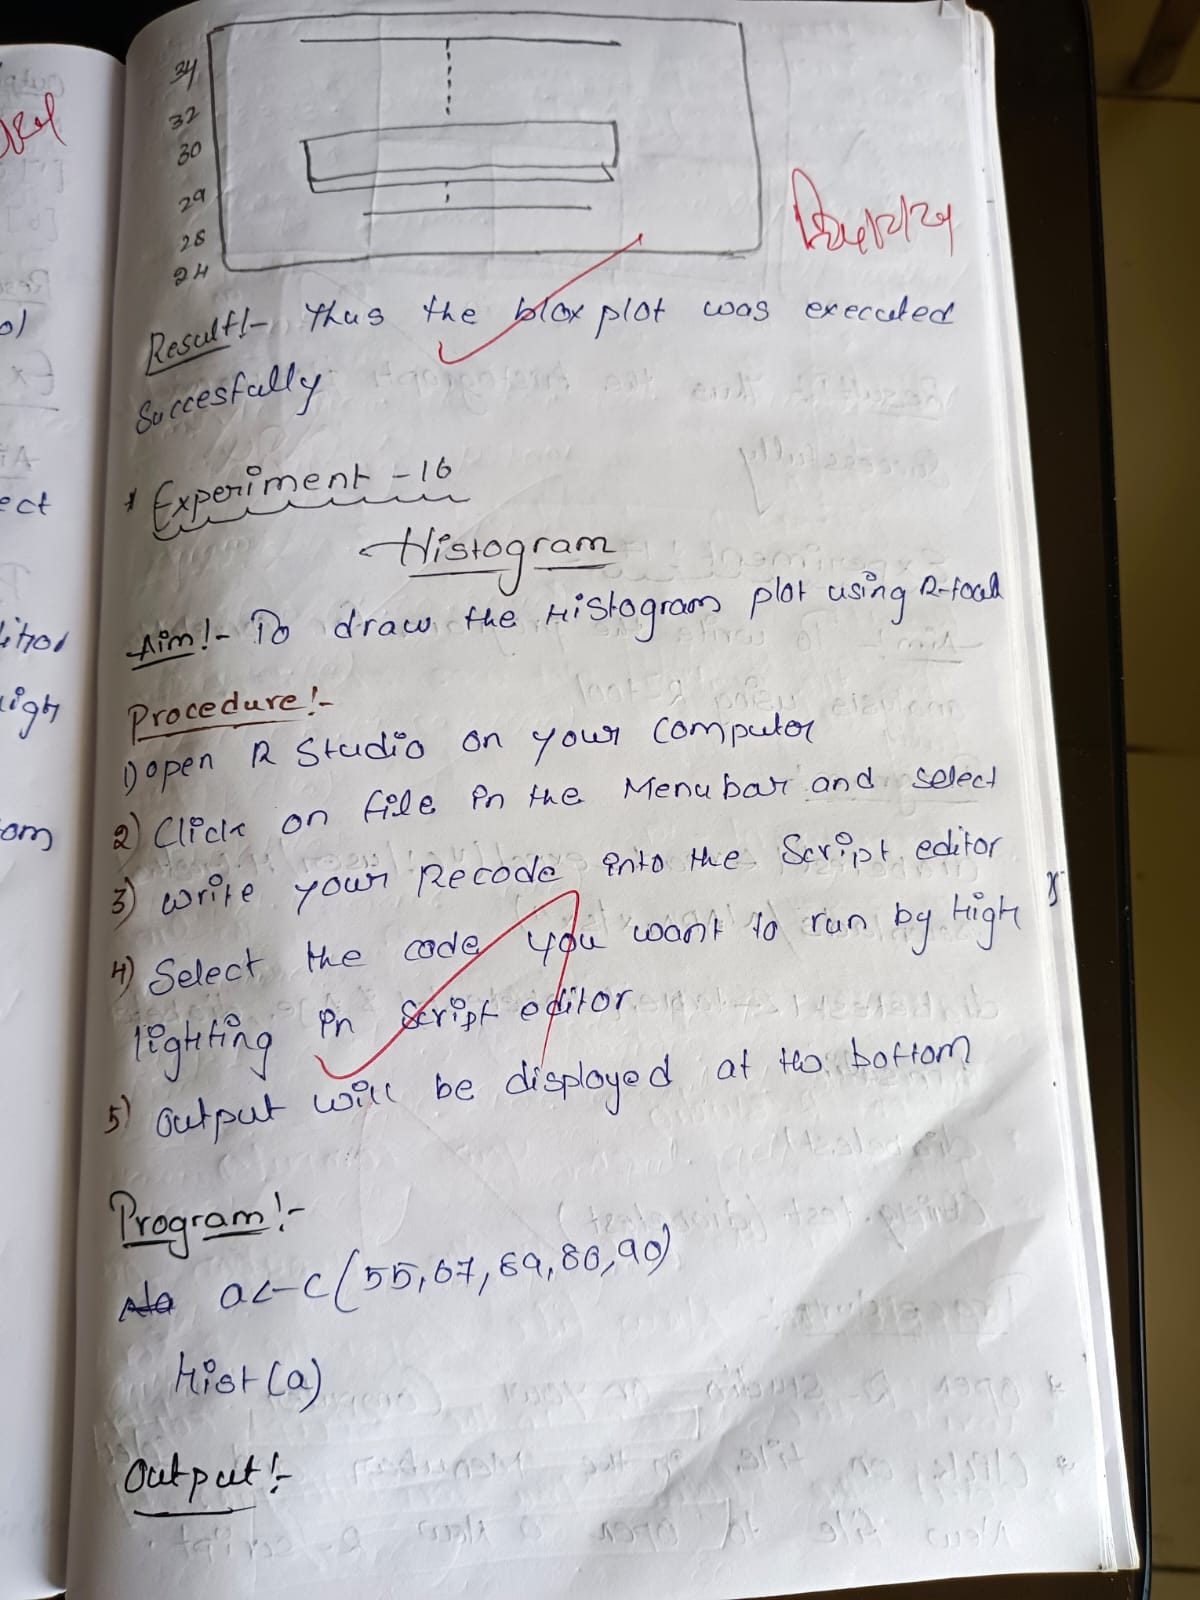 34
32
30
29
28
24
Result!- Thus the blox plot was executed
Succesfully
* Experiment -16
Histogram
Aim!- To draw the Histogram plot using R-tool
Procedure!-
1) open R Studio on your computer
2) Click on file in the Menubar and select
3) write your Recode into the Script editor
4) Select the code you want to run by High
lighting in Script editor
5) Output will be displayed at the bottom
Program!-
a<-c(55,67,89,80,90)
Hist(a)
Output!-
ect
om